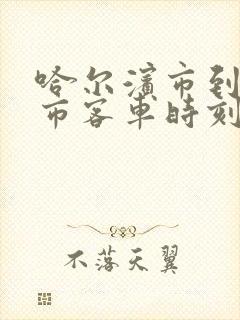 哈尔滨市到
市客車時刻
不落天翼